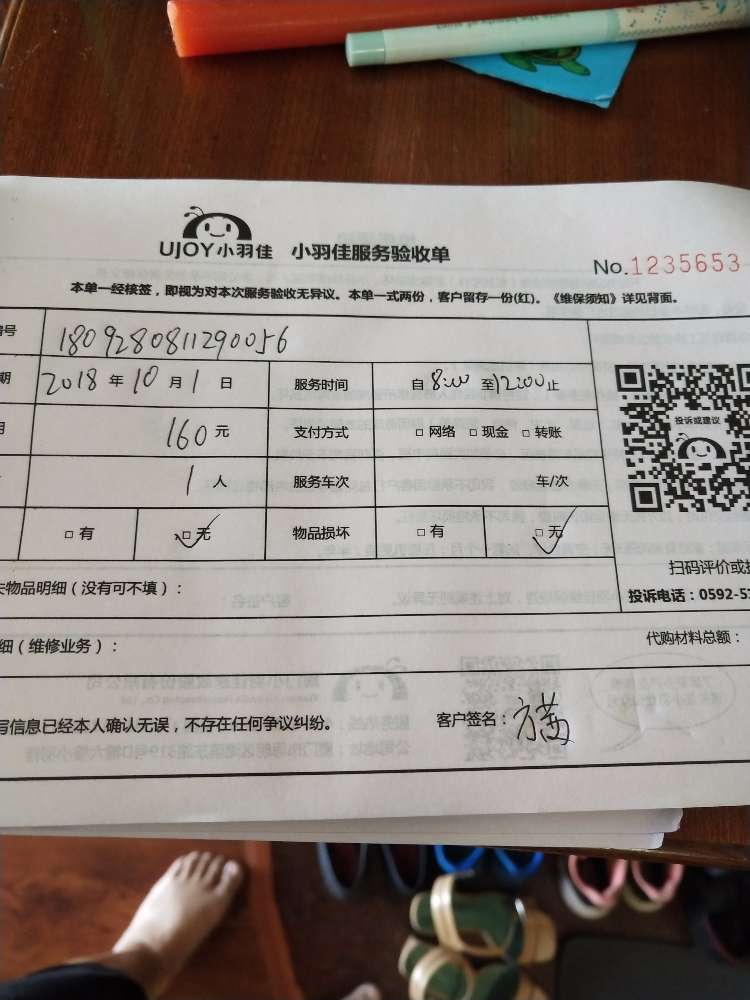 UJOY小羽佳 小羽佳服务验收单
No.1235653
本单一经核签，即视为对本次服务验收无异议。本单一式两份，客户留存一份(红)。《维保须知》详见背面。
号 1809280811290056
期 2018年10月1日 服务时间 自8:00至12:00止
160元 支付方式 □网络 □现金 □转账
1人 服务车次 车/次
□有 □无 物品损坏 □有 □无
投诉或建议
扫码评价或
投诉电话：0592-5
物品明细（没有可不填）：
细（维修业务）： 代购材料总额：
写信息已经本人确认无误，不存在任何争议纠纷。 客户签名：